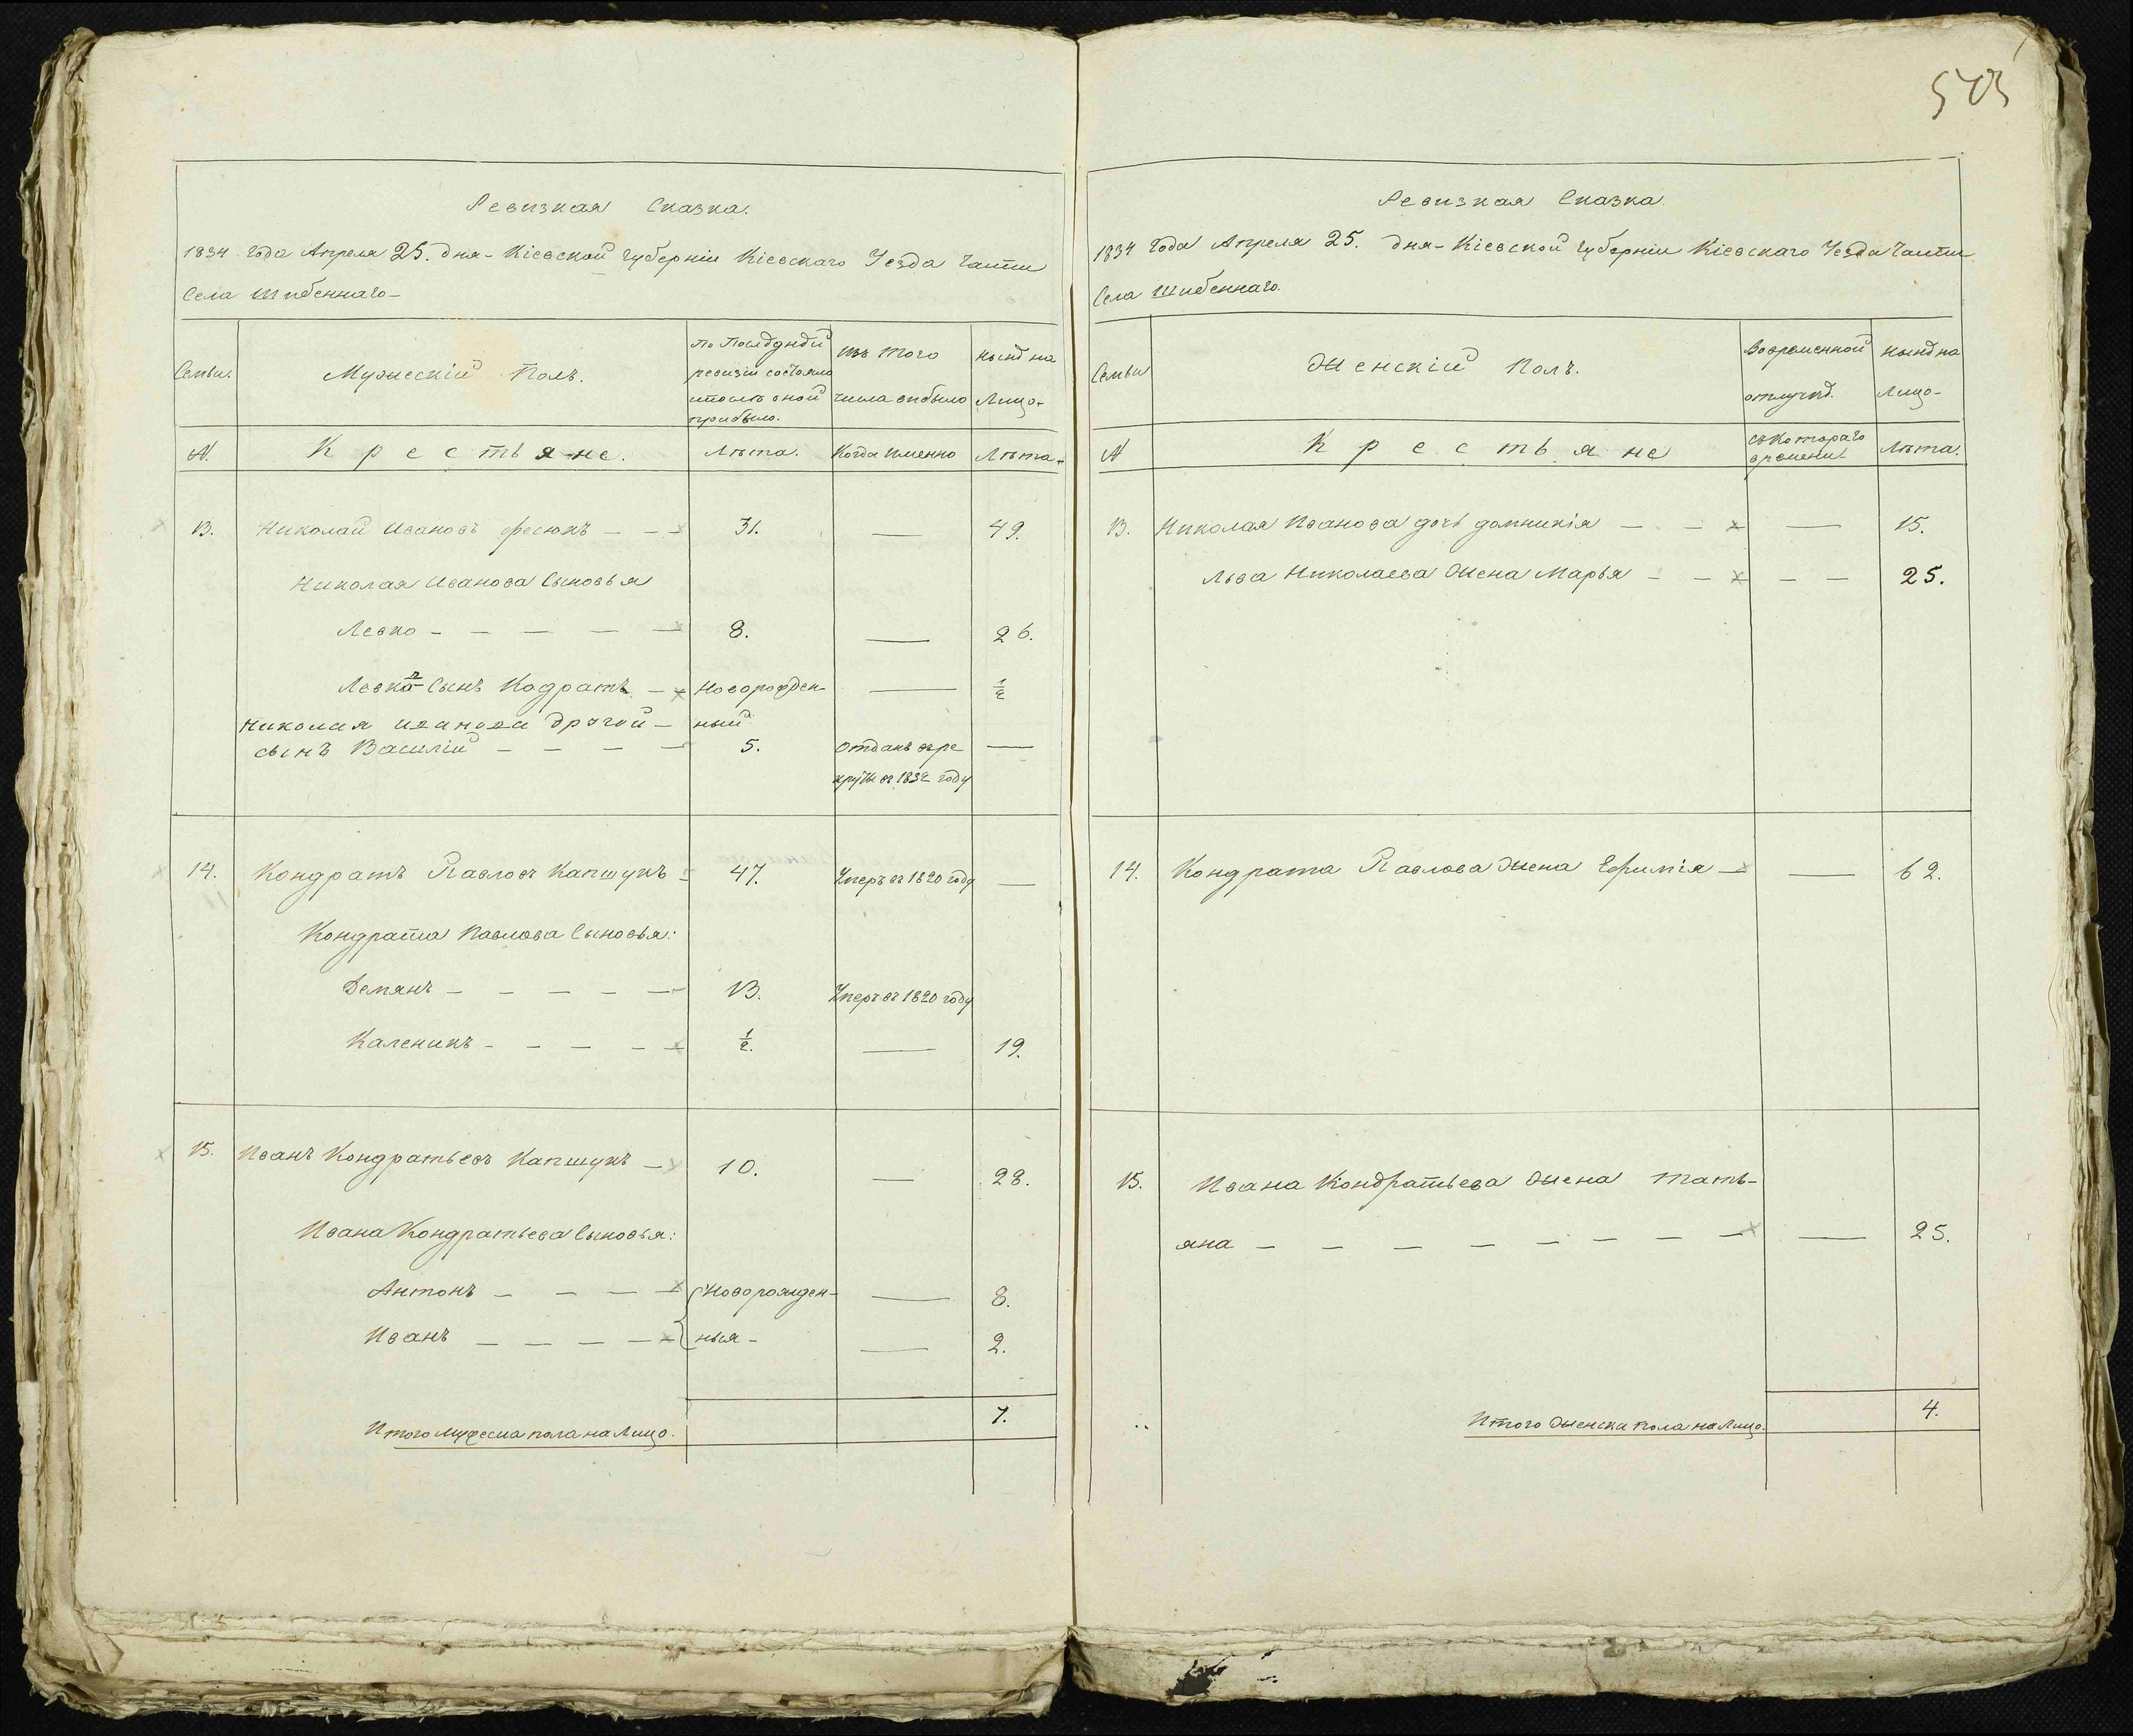 Ревизкая Сказка.
1834 года Апреля 25. дня - Кіевской Губерніи Кіевскаго Уезда Части
Села Шибеннаго -
Семьи.
Мужескій Полъ.
По Последней
ревизіи состояло
и после оной
прибыло.
Изъ того
числа выбыло
Ныне на
Лицо -
№.
Крестьяне.
Лѣта.
Когда Именно
Лѣта -
13. Николай Ивановъ Фесюкъ - - - 31. — 49.
Николая Иванова Сыновья
Левко - - - - - 8. — 26.
Левка Сынъ Кадратъ - - Новорожден- — 1/2
Николая Иванова другой - ный
сынъ Василій - - - - 5. Отданъ въ ре —
круты въ 1832 году
14. Кондратъ Павловъ Капшукъ - 47. Умеръ въ 1820 году —
Кондрата Павлова Сыновья:
Демянъ - - - - - 13. Умеръ въ 1820 году
Каленикъ - - - - - 1/2. — 19.
15. Иванъ Кондратьевъ Капшукъ - 10. — 28.
Ивана Кондратьева Сыновья:
Антонъ - - - - Новорожден- — 8.
Иванъ - - - - - ныя - — 2.
Итого мужеска пола на Лицо. 7.
Ревизкая Сказка.
1834 Года Апреля 25. дня - Кіевской Губерніи Кіевскаго Уезда Части
Села Шибеннаго.
Семьи
Женскій Полъ.
Во временной
отлучке.
Ныне на
Лицо -
№
Крестьяне
съ Котораго
времени.
Лѣта.
13. Николая Иванова дочь Домникія - - - — 15.
Льва Николаева Жена Марья - - - - - 25.
14. Кондрата Павлова Жена Ефимія - — 62.
15. Ивана Кондратьева Жена Тать-
яна - - - - - - - - — 25.
Итого Женска пола на Лицо. 4.